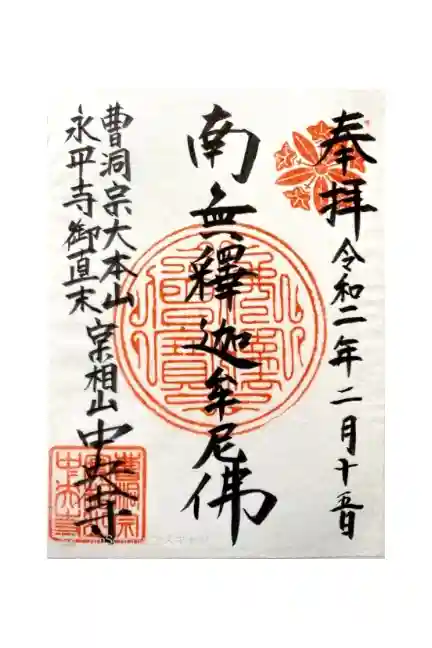 奉拝
令和二年二月十五日
南無釋迦牟尼佛
曹洞宗大本山
永平寺御直末
宗相山中央寺